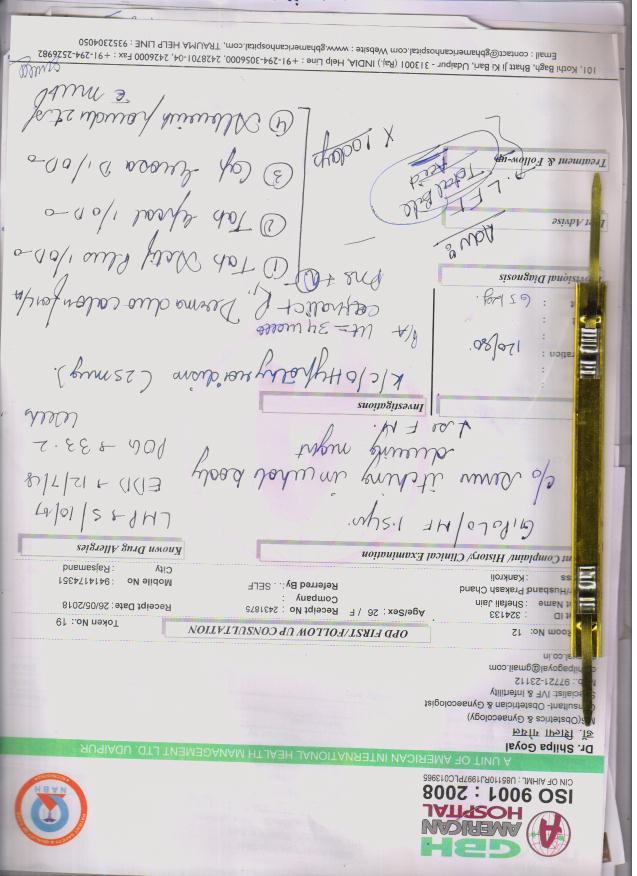 GBH
AMERICAN
HOSPITAL
ISO 9001 : 2008
CIN OF AIHML : U85110RJ1997PLC013965
NABH
A UNIT OF AMERICAN INTERNATIONAL HEALTH MANAGEMENT LTD. UDAIPUR
Dr. Shilpa Goyal
डॉ. शिल्पा गोयल
(Obstetrics & Gynaecology)
Consultant- Obstetrician & Gynaecologist
Specialist: IVF & Infertility
97721-23112
shilpagoyal@gmail.com
OPD FIRST/FOLLOW UP CONSULTATION
Room No: 12
Token No: 19
t ID : 324133
t Name : Shefali Jain
Age/Sex: 26 / F
Receipt No : 2431875
Receipt Date: 26/05/2018
/Husband Prakash Chand
Company :
Mobile No : 9414174351
ss : Kankroli
Referred By: . SELF
City : Rajsamand
nt Complaint/ History/ Clinical Examination
Known Drug Allergies
G1P0L0/MF 1.5yr.
LMP → 5/10/17
EDD → 12/7/18
POG → 33.2
week
c/o itching in whole body
during night
Investigations
K/C/O Hypothyroidism (25mcg).
120/80
65 kg.
P/A Ut = 34 weeks
cephalic
Provisional Diagnosis
Adv:
LFT
Total Bile
Acid
Diet Advise
Treatment & Follow-up
① Tab Plus 1/OD
② Tab 1/OD
③ Cap D 1/OD
④ powder
x 10 days
101, Kothi Bagh, Bhatt Ji Ki Bari, Udaipur - 313001 (Raj.) INDIA, Help Line : +91-294-3056000, 2428701-04, 2426000 Fax : +91-294-2526982
Email : contact@gbhamericanhospital.com Website : www.gbhamericanhospital.com, TRAUMA HELP LINE : 9352304050